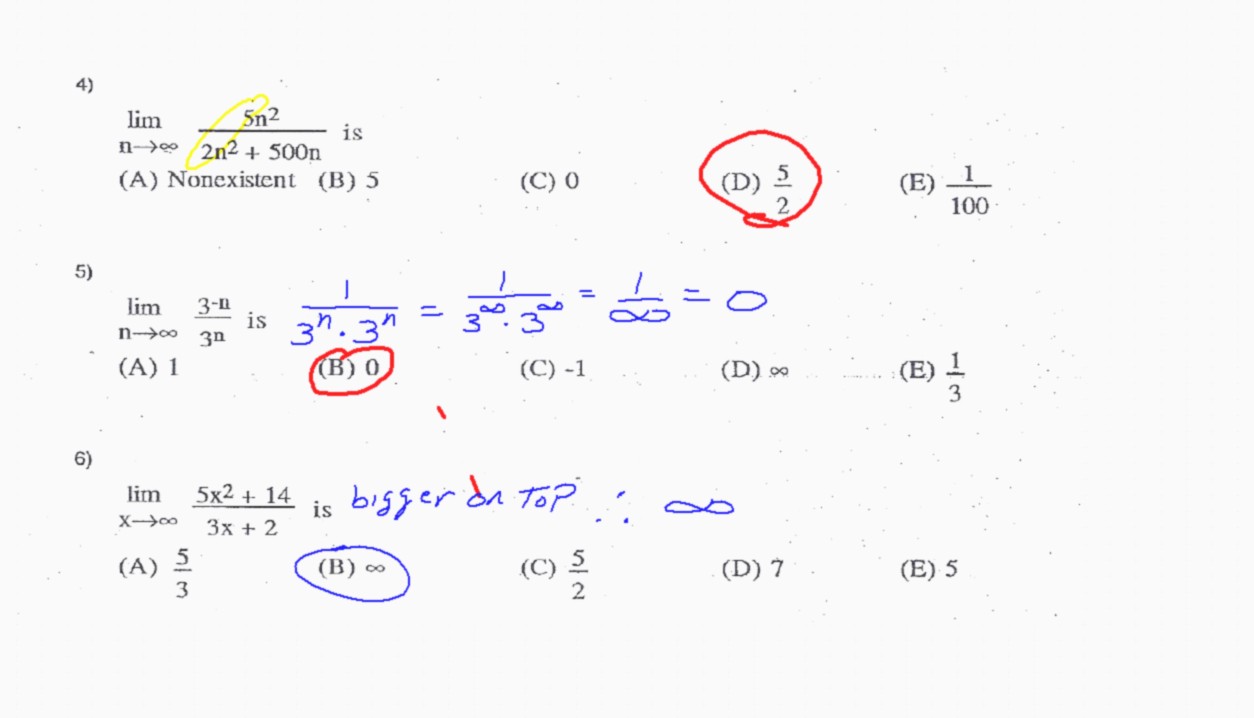 4)
lim n→∞ 5n²/(2n² + 500n) is
(A) Nonexistent (B) 5 (C) 0 (D) 5/2 (E) 1/100
5)
lim n→∞ 3⁻ⁿ/3ⁿ is 1/(3ⁿ · 3ⁿ) = 1/(3^∞ · 3^∞) = 1/∞ = 0
(A) 1 (B) 0 (C) -1 (D) ∞ (E) 1/3
6)
lim x→∞ (5x² + 14)/(3x + 2) is bigger on TOP ∴ ∞
(A) 5/3 (B) ∞ (C) 5/2 (D) 7 (E) 5